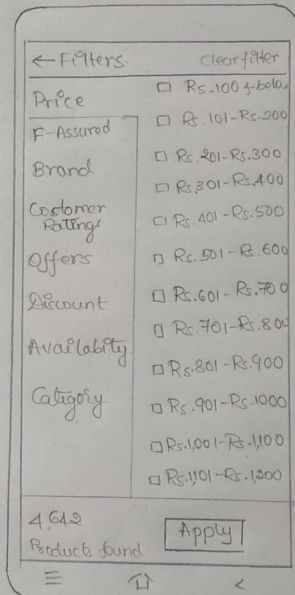 ← Filters. Clearfilter
Price
F-Assured
Brand
Costomer
Ratings
Offers
Discount
Availabity
Category
Rs.100 & belo
Rs.101-Rs.200
Rs.201-Rs.300
Rs.301-Rs.400
Rs.401-Rs.500
Rs.501-Rs.600
Rs.601-Rs.700
Rs.701-Rs.800
Rs.801-Rs.900
Rs.901-Rs.1000
Rs.1,001-Rs.1,100
Rs.1,101-Rs.1,200
4,642
Products found
Apply